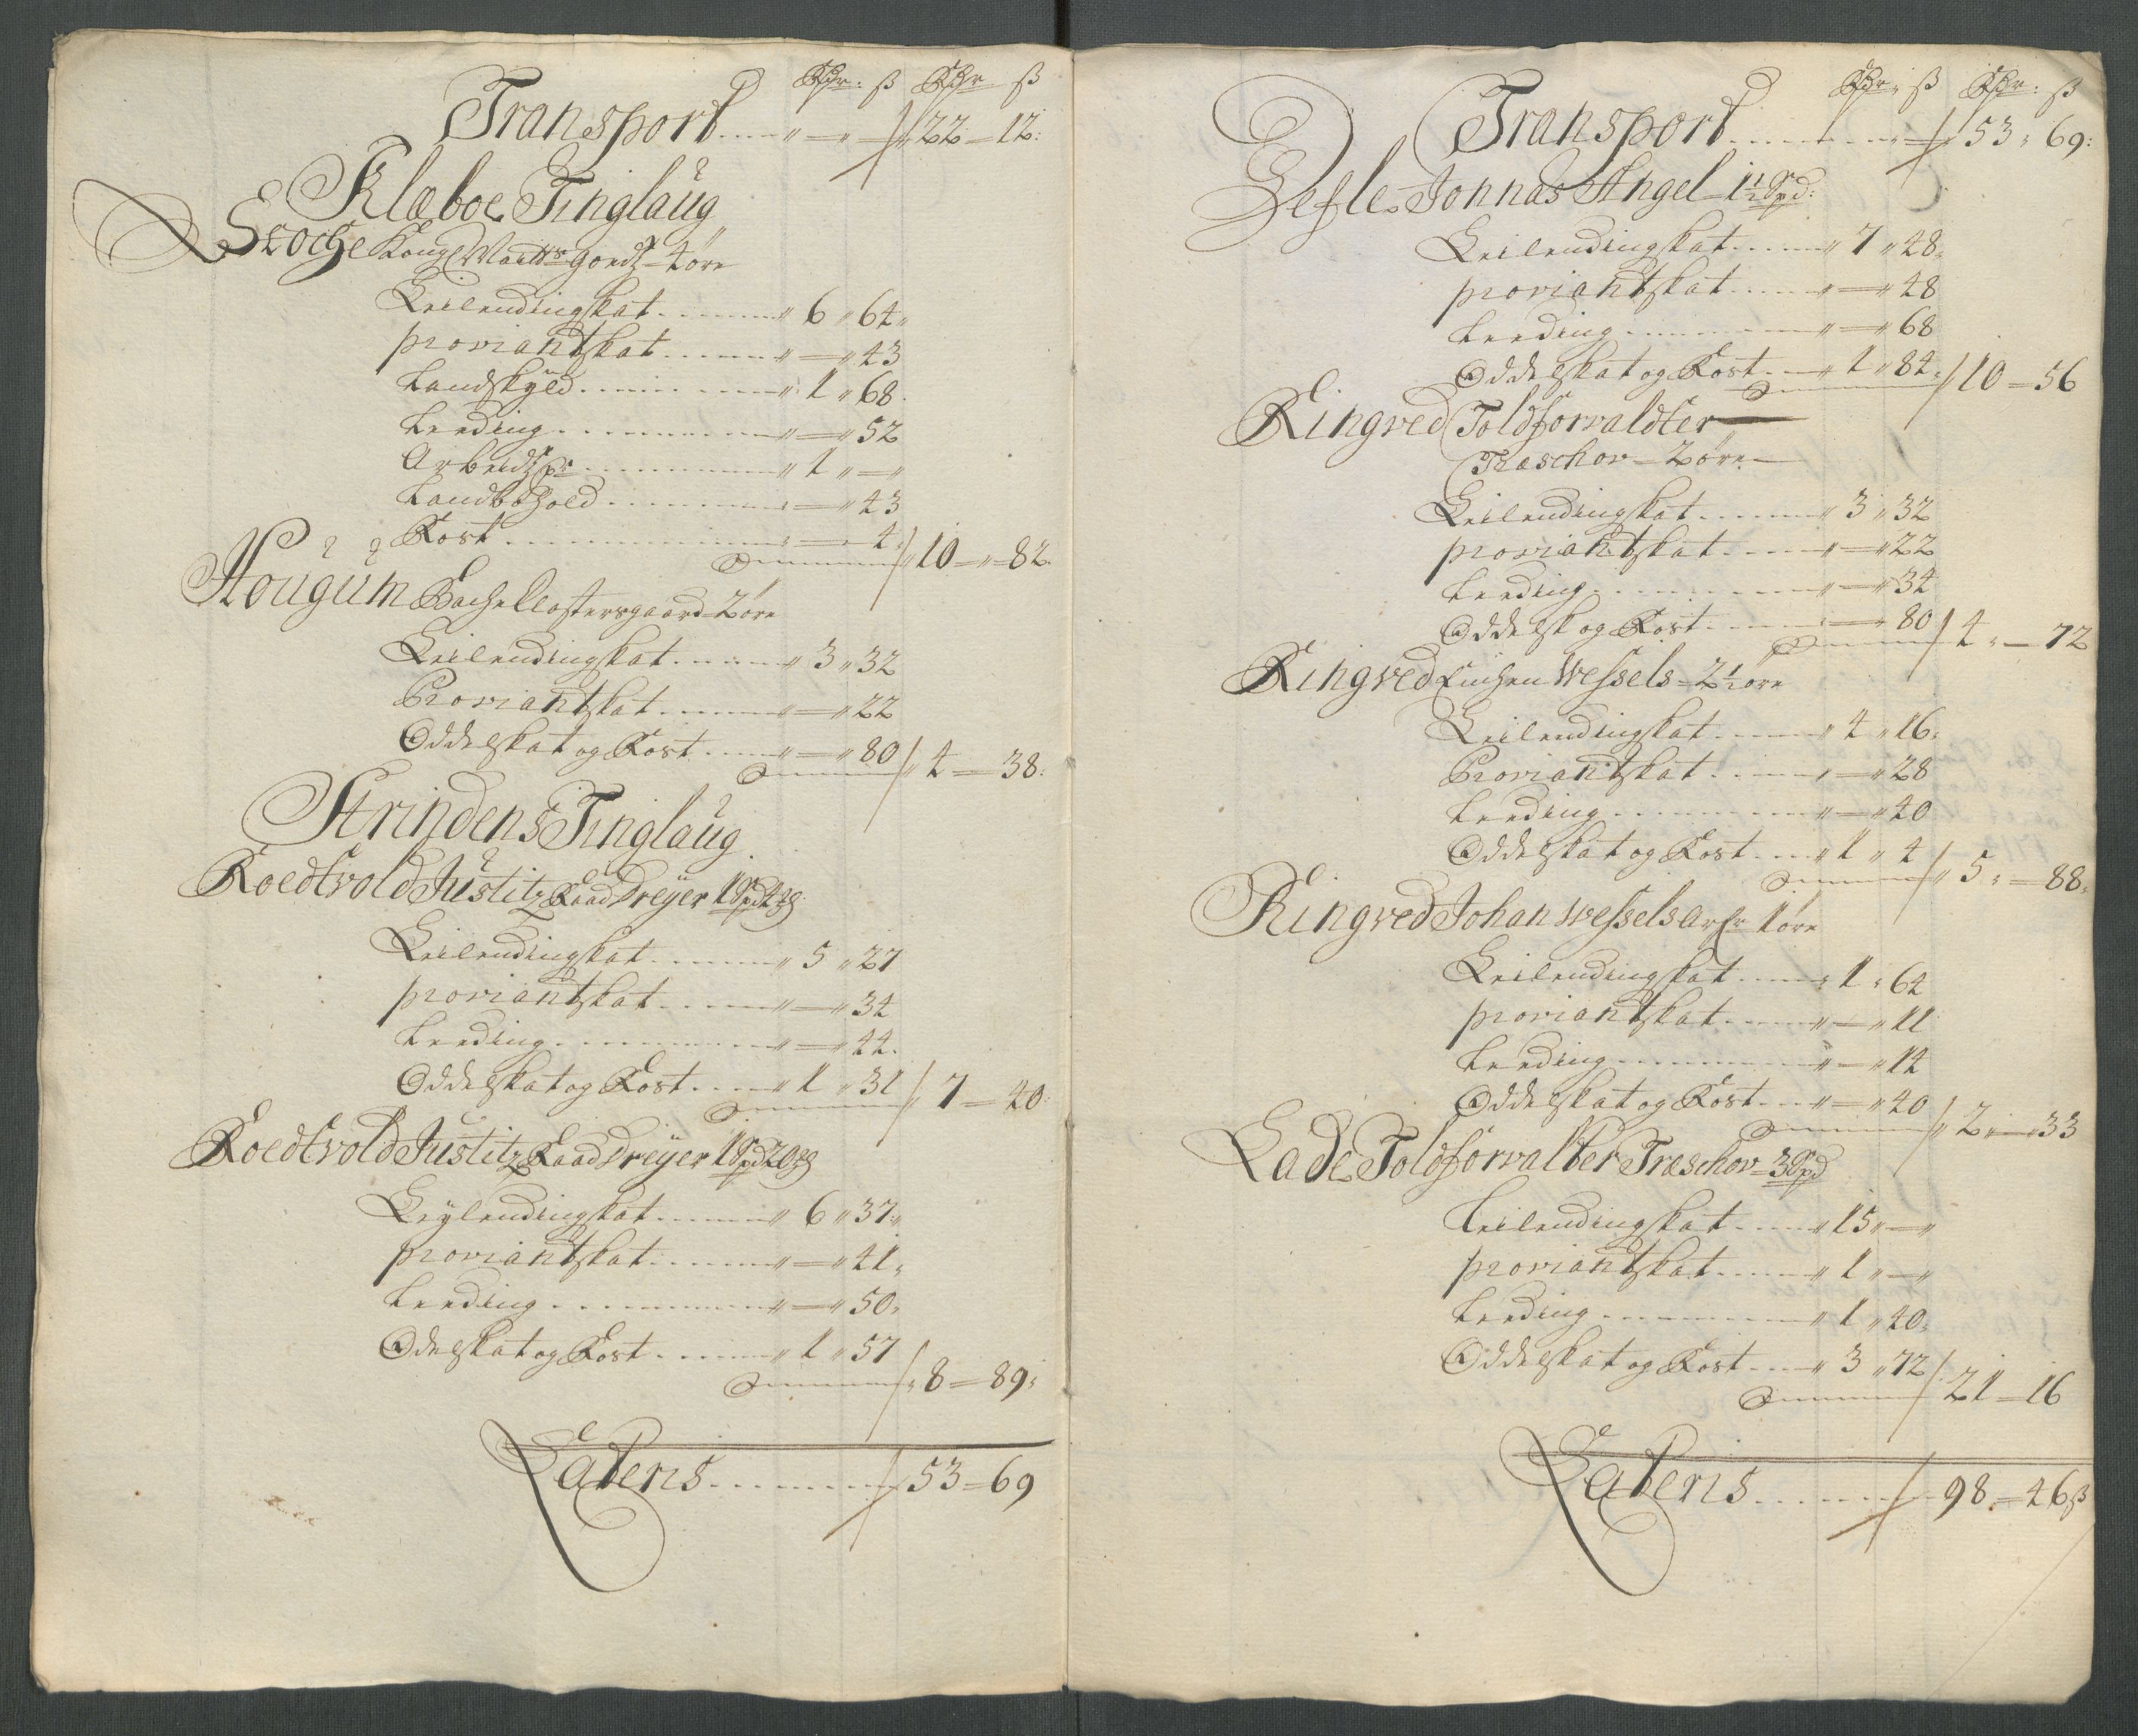 Rdr: ß Rdr ß
Transport ..... " — " — " 22 — 12:
Klæboe Tinglaug
Stoche Kongl Maÿtts goedtz 4 øre
Leilendingskat ........ " 6 " 64 "
proviantskat ...... " — " 43
Landskÿld ........ " 1 " 68
Leeding ........ " — " 52
Arbeidtz pr ........ " 1 " — "
Landbohold ........ " — " 43
Kost ........ " — " 4 " 10 — " — 82
Hougum Bache Clostersgaard 2 øre
Leilendingskat ...... " 3 " 32
Proviantskat ...... " — " 22
Oddelskat og Kost .... " — " 80 " 4 — 38:
Strindens Tinglaug
Roedtvold Justitz Raad Dreÿer 1 Spd 4 mk
Leilendingskat ...... " 5 " 27
proviantskat ...... " — " 34
Leeding ........ " — " 44
Oddelskat og Kost .... " 1 " 31 " 7 — 40
Roedtvold Justitz Raad Dreÿer 1 Spd 20 mk
Leÿlendingskat ...... " 6 " 37 "
proviantskat ...... " — " 41 "
Leeding ........ " — " 50 "
Odelskat og Kost ...... " 1 " 57
" 8 — 89 "
Lateris ........ 53 — 69
Rdr: ß Rdr: ß
Transport ........ " 53 " 69:
Defle Jonnas Angel 1½ Spd:
Leilendingskat ...... " 7 " 48 "
proviantskat ...... " — " 48
Leeding ........ " — " 68
Oddelskat og Kost ... " 1 " 84 " 10 — 56
Ringved Toldforvaldter
Træschov — 2 øre —
Leilendingskat ...... " 3 " 32
proviantskat ..... " — " 22
Leeding ........ " — " 34
Oddelsk og Kost ...... " — 80 4 " — 72
Ringved Luchen Wessels — 2½ øre
Leilendingskat ...... " 4 " 16 "
Proviantskat ..... " — " 28
Leeding ........ " — " 40
Oddelskat og Kost .... " 1 " 4 " 5 " — 88 "
Ringved Johan Wessels Arfr 1 øre
Leilendingskat ..... " 1 " 64
proviantskat .... " — " 11
Leeding ........ " — " 14
Oddelskat og Kost ... " — " 40 " 2 " — " 33
Lade Toldforvalter Træschov — 3 Spd
Leilendingskat .... " 15 " — "
proviantskat ..... " 1 " — "
Leeding ........ " 1 " 40 "
Oddelskat og Kost .... " 3 " 72 21 — 16
Lateris ........ 98 " — 46 ß